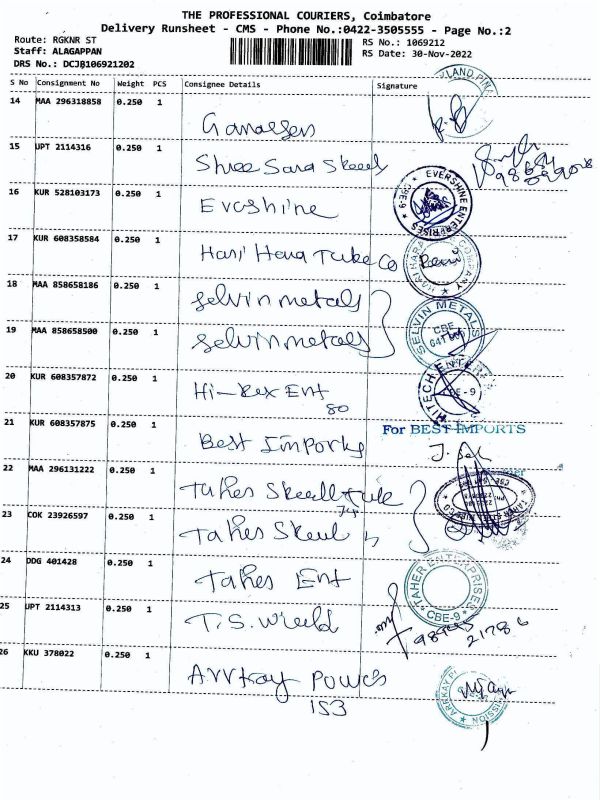 THE PROFESSIONAL COURIERS, Coimbatore
Delivery Runsheet - CMS - Phone No.:0422-3505555 - Page No.:2
Route: RGKNR ST
Staff: ALAGAPPAN
DRS No.: DCJB106921202
RS No.: 1069212
RS Date: 30-Nov-2022
S No Consignment No Weight PCS Consignee Details Signature
14 MAA 296318858 0.250 1
15 UPT 2114316 0.250 1
Shree Sara Skeels
16 KUR 528103173 0.250 1
Evoshine
EVERSHINE ENTERPRISES
17 KUR 608358584 0.250 1
Hari Hara Tube Co
HARI HARA COMPANY
18 MAA 858658186 0.250 1
selvin metals
19 MAA 858658500 0.250 1
selvin metals
SELVIN METALS
CBE
20 KUR 608357872 0.250 1
Hi-Rex Ent
80
HITECH ENTE
CBE-9
21 KUR 608357875 0.250 1
Best Imports
For BEST IMPORTS
22 MAA 296131222 0.250 1
23 COK 23926597 0.250 1
24 DDG 401428 0.250 1
Tahes Ent
TAHER ENTERPRISES
CBE-9
25 UPT 2114313 0.250 1
T.S. World
26 KKU 378022 0.250 1
Arrkay Powes
153